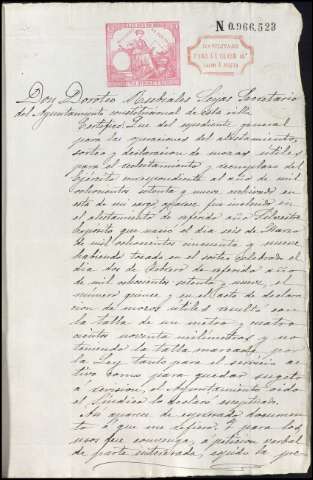 N 0.966,523
Don Doroteo Secretario
del Ayuntamiento constitucional de esta villa
Certifico: Que del espediente general
para las operaciones del alistamiento,
sorteo y declaracion de mozos utiles
para el reclutamiento y reemplazo del
Ejercito correspondiente al año de mil
ochocientos setenta y nueve archivado en
esta de mi cargo aparece fue incluido en
el alistamiento de referido año
Esposito que nació el dia seis de Marzo
de mil ochocientos cincuenta y nueve
habiendo tocado en el sorteo celebrado el
dia dos de Febrero de referido año
de mil ochocientos setenta y nueve, el
numero quince y en el acto de declara
cion de mozos utiles resultó con
la talla de un metro y cuatro
cientos noventa milimetros y no
teniendo la talla marcada por
la Ley tanto para el servicio ac
tivo como para quedar sugeto
á revision, el Ayuntamiento oido
el Sindico lo declaró esceptuado.
Asi aparece de espresado documento
á que me refiero. Y para los
usos que convenga, á peticion verbal
de parte interesada, espido la pre